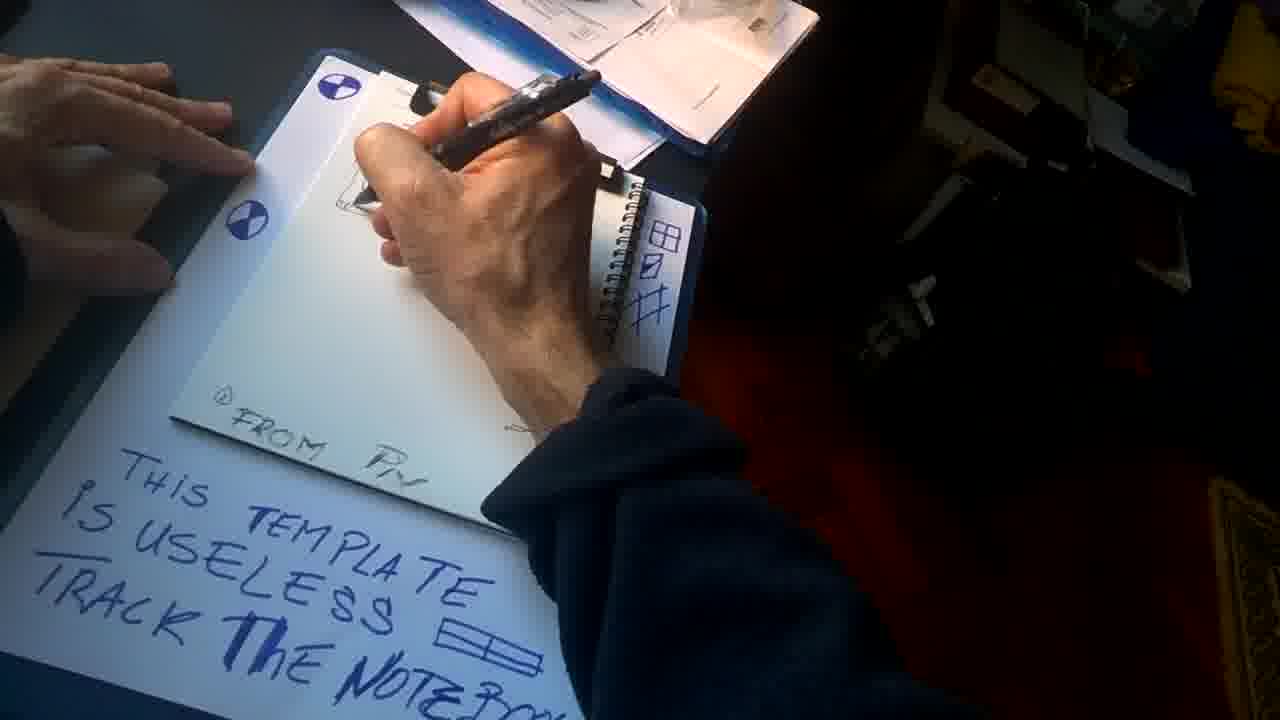 ① FROM Pin
THIS TEMPLATE
iS USELESS
TRACK ThE NOTEBOO